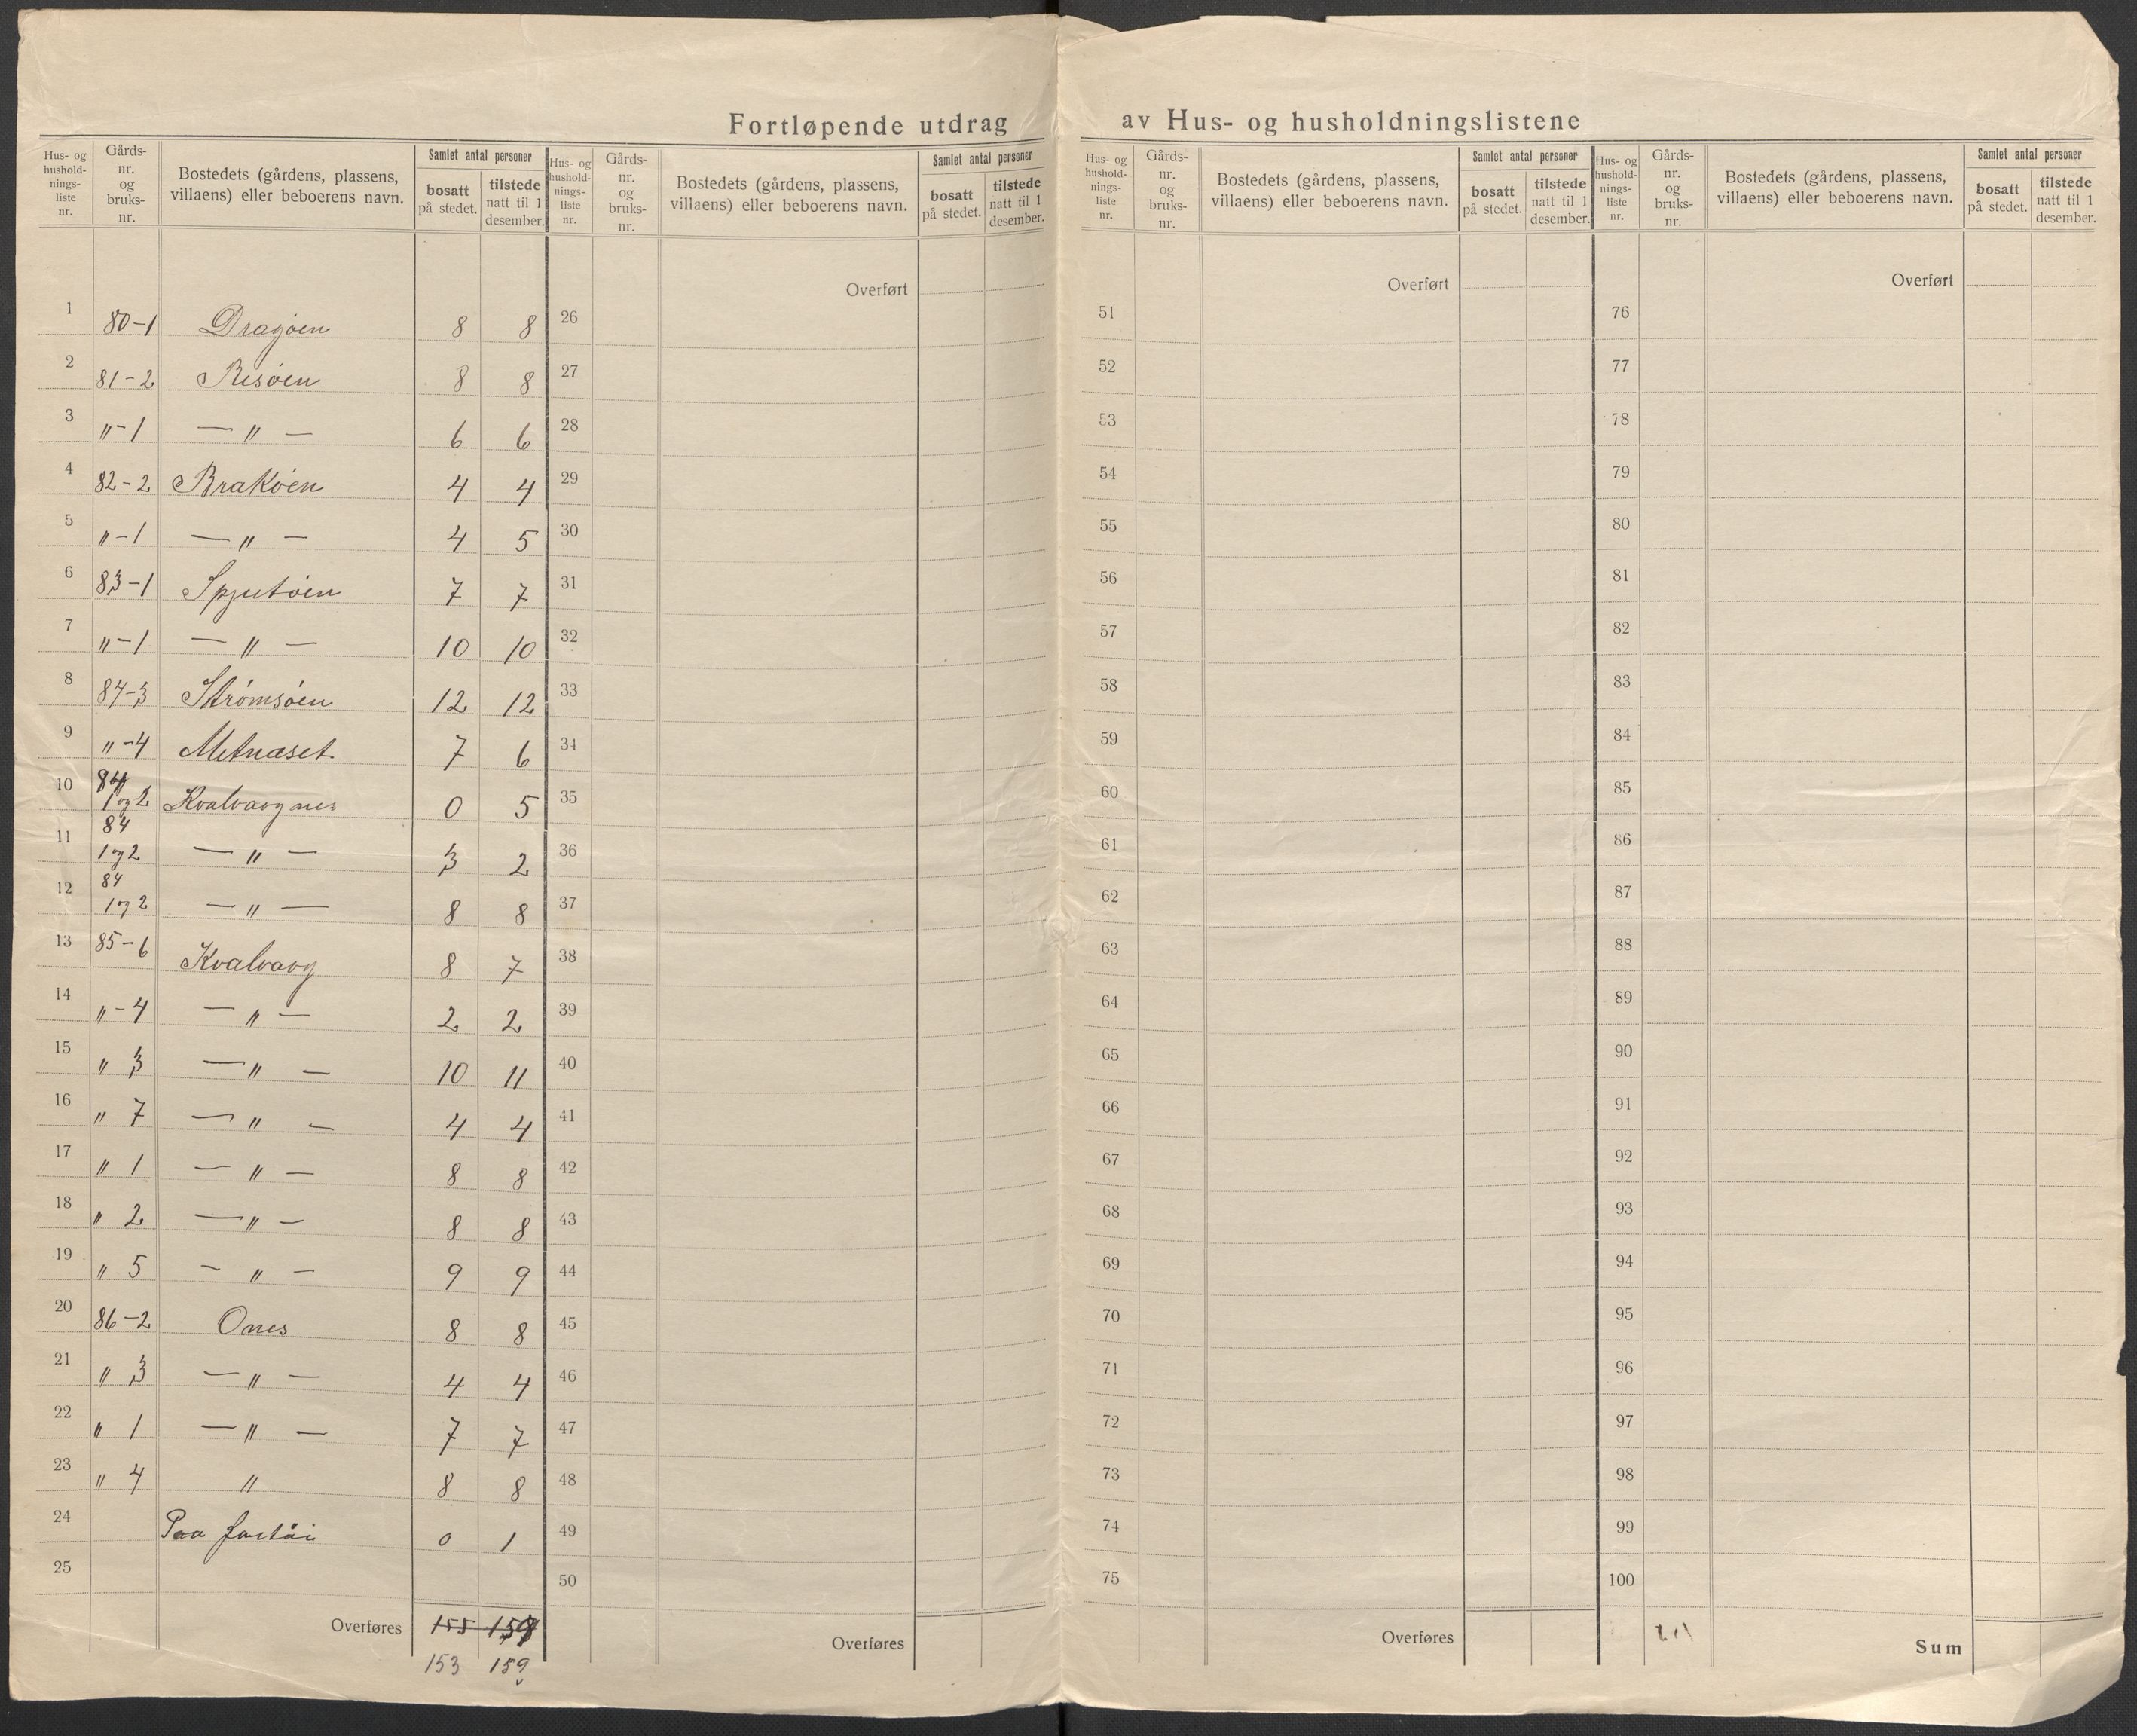 Fortløpende utdrag av Hus- og husholdningslistene
Hus- og hushold-nings-liste nr. Gårds-nr. og bruks-nr. Bostedets (gårdens, plassens, villaens) eller beboerens navn. Samlet antal personer bosatt på stedet. tilstede natt til 1 desember.
1 80-1 Dragøen 8 8
2 81-2 Risøen 8 8
3 "-1 — " — 6 6
4 82-2 Brakøen 4 4
5 "-1 — " — 4 5
6 83-1 Spjutøen 7 7
7 "-1 — " — 10 10
8 84-3 Strømsøen 12 12
9 "-4 Metnæset 7 6
10 84 1 og 2 Kvalvaagnes 0 5
11 84 1 og 2 — " — 3 2
12 84 1 og 2 — " — 8 8
13 85-6 Kvalvaag 8 7
14 "-4 — " — 2 2
15 " 3 — " — 10 11
16 " 7 — " — 4 4
17 " 1 — " — 8 8
18 " 2 — " — 8 8
19 " 5 — " — 9 9
20 86-2 Ones 8 8
21 " 3 — " — 4 4
22 " 1 — " — 7 7
23 " 4 " 8 8
24 Paa 0 1
25
Overføres 155
153 159
Hus- og hushold-nings-liste nr. Gårds-nr. og bruks-nr. Bostedets (gårdens, plassens, villaens) eller beboerens navn. Samlet antal personer bosatt på stedet. tilstede natt til 1 desember.
Overført
26
27
28
29
30
31
32
33
34
35
36
37
38
39
40
41
42
43
44
45
46
47
48
49
50
Overføres
Hus- og hushold-nings-liste nr. Gårds-nr. og bruks-nr. Bostedets (gårdens, plassens, villaens) eller beboerens navn. Samlet antal personer bosatt på stedet. tilstede natt til 1 desember.
Overført
51
52
53
54
55
56
57
58
59
60
61
62
63
64
65
66
67
68
69
70
71
72
73
74
75
Overføres
Hus- og hushold-nings-liste nr. Gårds-nr. og bruks-nr. Bostedets (gårdens, plassens, villaens) eller beboerens navn. Samlet antal personer bosatt på stedet. tilstede natt til 1 desember.
Overført
76
77
78
79
80
81
82
83
84
85
86
87
88
89
90
91
92
93
94
95
96
97
98
99
100
Sum